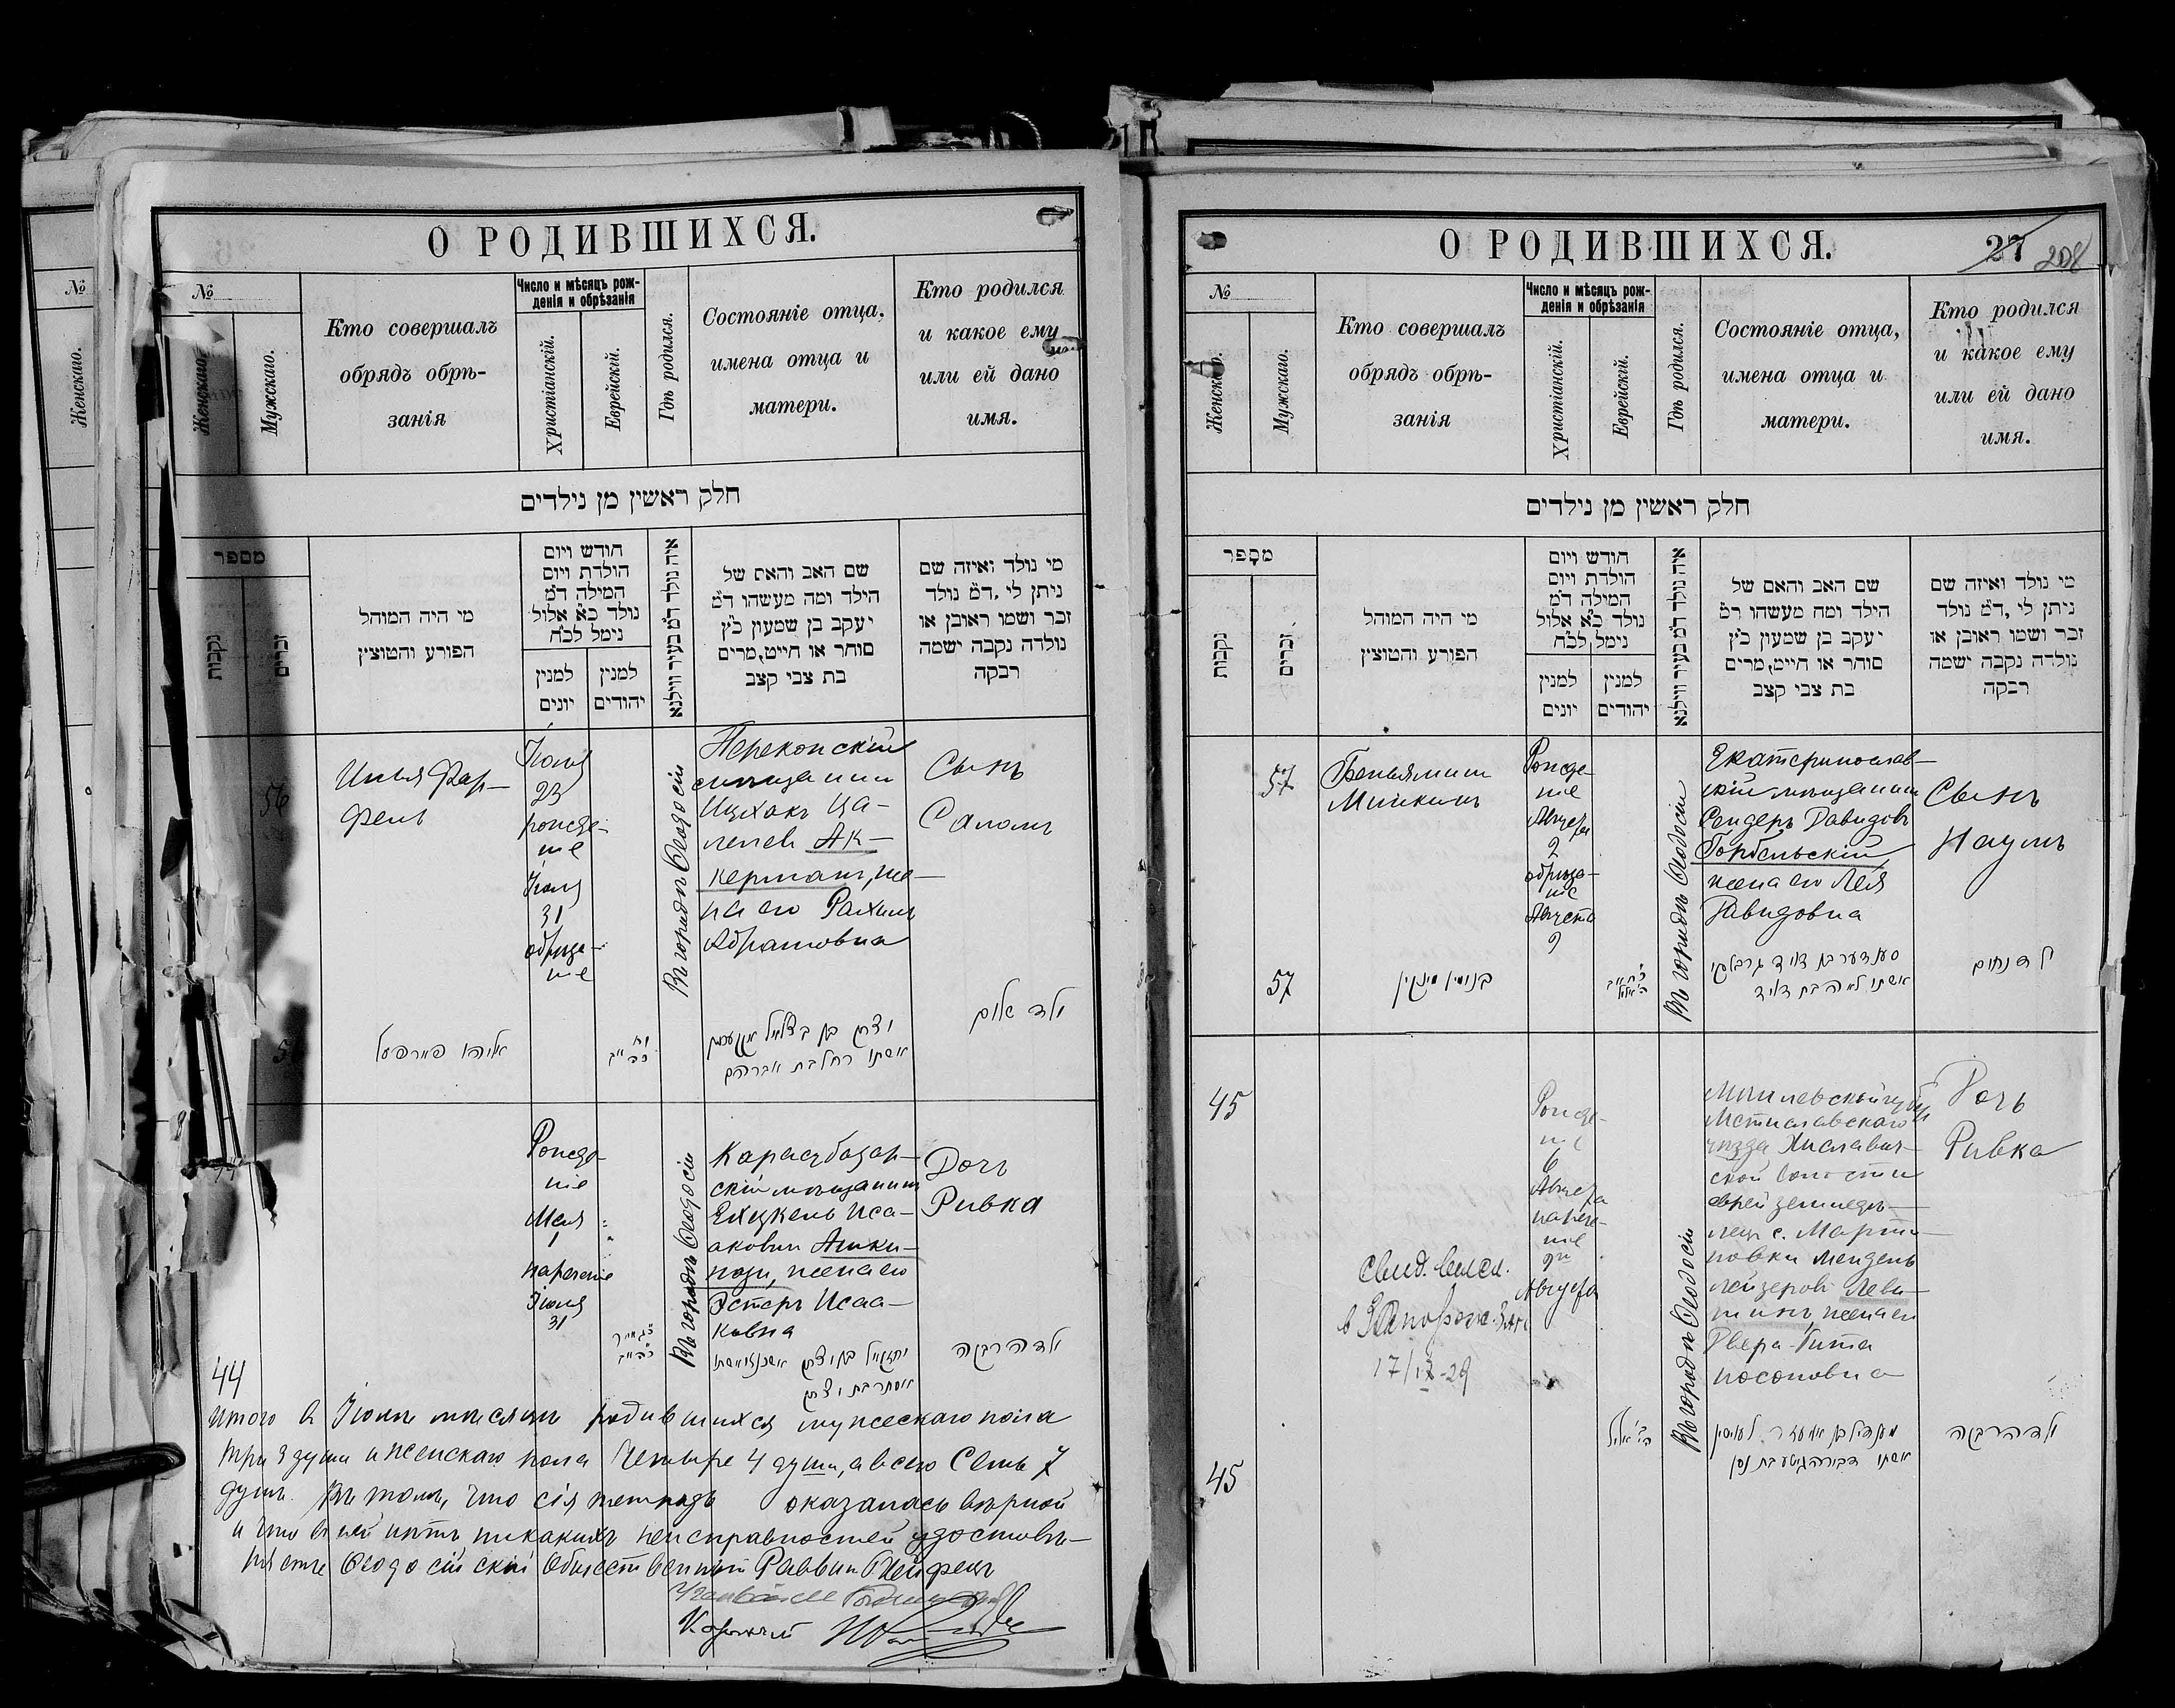 О РОДИВШИХСЯ.
№
Женскаго.
Мужскаго.
Кто совершалъ
обрядъ обрѣ-
занія
Число и мѣсяцъ рож-
денія и обрѣзанія
Христіанскій.
Еврейскй.
Гдѣ родился.
Состояніе отца,
имена отца и
матери.
Кто родился
и какое ему
или ей дано
имя.
חלק ראשין מן נילדים
מספר
נקבות
זכרים
מי היה המוהל
הפורע והמוצץ
חודש ויום
הולדת ויום
המילה ד״מ
נולד כ״א אלול
נימל לכ״ח
למנין
יונים
למנין
יהודים
איה נולד ד״מ בעיר ווילנא
שם האב והאם של
הילד ומה מעשהו ד״מ
יעקב בן שמעון כ״ץ
סוחר או חייט,מרים
בת צבי קצב
מי נולד ואיזה שם
ניתן לי ,ד״מ נולד
זכר ושמו ראובן או
נולדה נקבה ישמה
רבקה
56
Илья Фар-
фель
Іюля
23
рожде-
ніе
Іюля
31
обрѣза-
ніе
Въ городѣ Ѳеодосіи
Перекопскій
мѣщанинъ
Ицхокъ Ца-
лелев Ак-
керманъ, же-
на его Рахиль
Абрамовна
Сынъ
Саломъ
אליהו פיירפעל
יצחק בן בצלאל אקערמן
אשתו רחל בת אברהם
ילד שלום
Рожде-
ніе
1
нареченіе
Іюля
31
Въ городѣ Ѳеодосіи
Карасубазар-
скій мѣщанинъ
Ехизкель Иса-
аковичъ Ашки-
нази, жена его
Эстеръ Исаа-
ковна
Дочь
Ривка
יחזקאל בן יצחק אשכנזי אשתו
אסתר בת יצחק
ילדה רבקה
44
Итого въ Іюлѣ мѣсяцѣ родившихся мужескаго пола
три 3 души и женскаго пола Четыре 4 души, а всего Семь 7
душъ. Въ томъ, что сія тетрадь оказалась вѣрной
и что въ ней нѣтъ никакихъ неисправностей удостовѣ-
ряетъ Ѳеодосійскій Общественный Раввинъ
О РОДИВШИХСЯ.
27
208
№
Женскаго.
Мужскаго.
Кто совершалъ
обрядъ обрѣ-
занія
Число и мѣсяцъ рож-
денія и обрѣзанія
Христіанскій.
Еврейскій.
Гдѣ родился.
Состояніе отца,
имена отца и
матери.
Кто родился
и какое ему
или ей дано
имя.
חלק ראשין מן נילדים
מספר
נקבות
זכרים
מי היה המוהל
הפורע והמוצץ
חודש ויום
הולדת ויום
המילה ד״מ
נולד כ״א אלול
נימל לכ״ח
למנין
יונים
למנין
יהודים
איה נולד ד״מ בעיר ווילנא
שם האב והאם של
הילד ומה מעשהו ד״מ
יעקב בן שמעון כ״ץ
סוחר או חייט,מרים
בת צבי קצב
מי נולד ואיזה שם
ניתן לי ,ד״מ נולד
זכר ושמו ראובן או
נולדה נקבה ישמה
רבקה
57
Беньяминъ
Минкинъ
Рожде-
ніе
Августа
2
обрѣза-
ніе
Августа
9
Въ городѣ Ѳеодосіи
Екатеринослав-
скій мѣщанинъ
Сендеръ Давидовъ
Горбельскій
жена его Лея
Давидовна
Сынъ
Наумъ
57
בנימין מינקין
סענדער בן דוד
אשתו לאה בת דוד
ילד נחום
45
Рожде-
ніе
6
Августа
нарече-
ніе
9го
Августа
Въ городѣ Ѳеодосіи
Могилевской губ.
Мстиславскаго
уѣзда Хиславич-
ской волости
еврей землед­ѣ-
лец с. Марти-
новки Мендель
Лейзеров Леви-
тинъ, жена его
Двера-Гита
Носоновна
Дочь
Ривка
Свид. высл.
в Запорож. Загс
17/IX-29
45
מענדיל בן אליעזר לעוויטין
אשתו דבורה גיטע בת נסן
ילדה רבקה